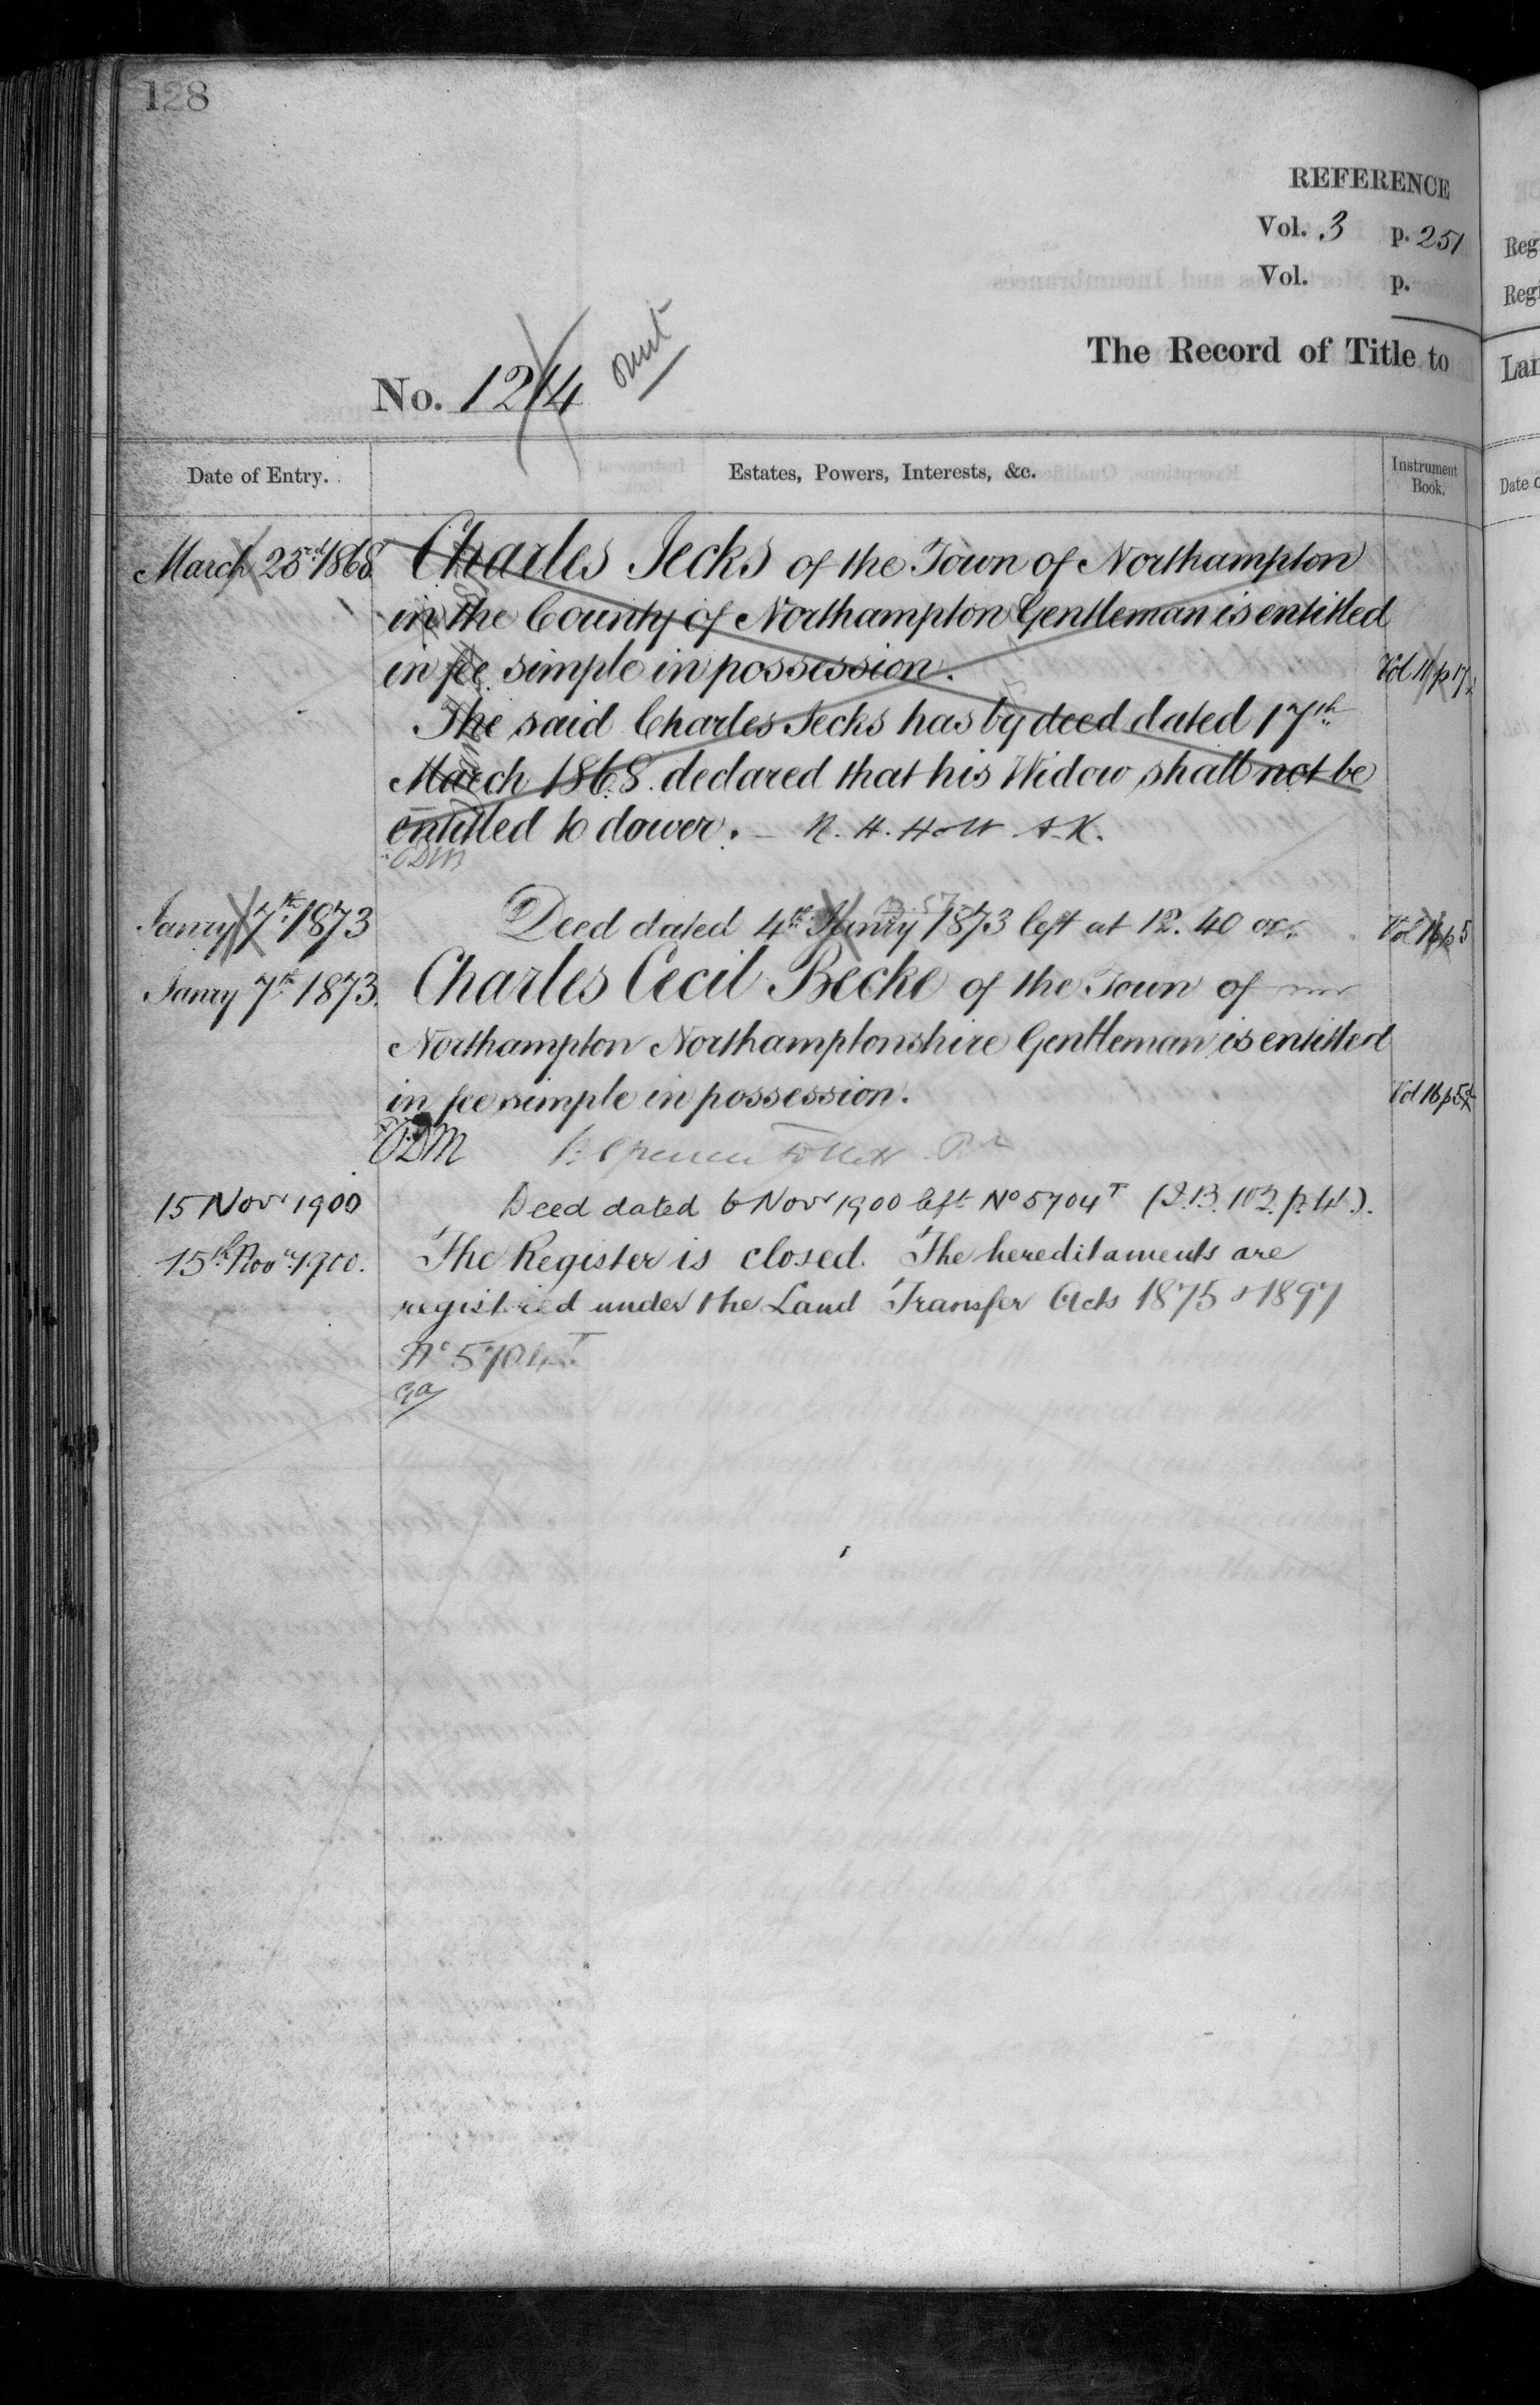 128
REFERENCE
Vol. 3 p. 251
Vol. p.
The Record of Title to
No. 1214
Date of Entry. Estates, Powers, Interests, &c. Instrument Book.
March 23rd 1868 Charles Jecks of the Town of Northampton
in the County of Northampton Gentleman is entitled
in fee simple in possession. Vol 11 p 17
The said Charles Jecks has by deed dated 17th
March 1868 declared that his Widow shall not be
entitled to dower. N. H. Holt A.R.
ODM
Janry 7th 1873 Deed dated 4th Janry 1873 left at 12.40 Vol 16 p 5
Janry 7th 1873. Charles Cecil Becke of the Town of
Northampton Northamptonshire Gentleman is entitled
in fee simple in possession. Vol 16 p 5
ODM
15 Novr 1900 Deed dated 6 Novr 1900 left No 5704T (I.B. 102. p. 41).
15th Novr 1900. The Register is closed. The hereditaments are
registered under the Land Transfer Acts 1875 & 1897
No 5704T
Reg
Regi
Lan
Date o